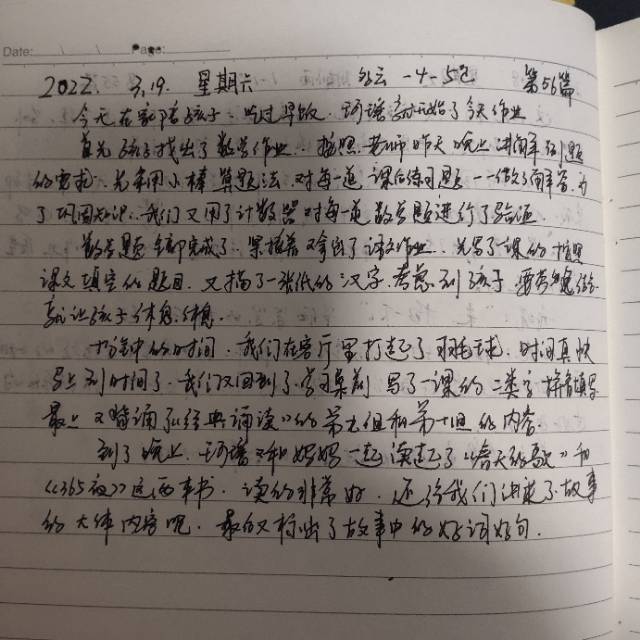 Date: / / Page:
2022. 3.19. 星期六 多云 -4-5℃ 第56篇
今天在家陪孩子.吃过早饭.开始了今天作业
首先孩子找出了数学作业.按照老师昨天晚上讲解的题
的要求.先采用小棒算题法.对每一道课后练习题一一做了解答.为
了巩固知识.我们又用了计数器对每一道数学题进行了验证
数学题全部完成了.紧接着拿出了语文作业.先写了一课的按照
课文填空的题目.又描了一张纸的汉字.考虑到孩子
就让孩子休息.休息.
十分钟的时间.我们在客厅里打起了羽毛球.时间真快
马上到时间了.我们又回到了学习桌前写了一课的二类字拼音填写
最后又背诵了《经典诵读》的第九组和第十组的内容.
到了晚上.和妈妈一起读起了《春天的歌》和
《365夜》这两本书.读的非常好.还给我们讲了故事
的大体内容呢.最后又标出了故事中的好词好句.